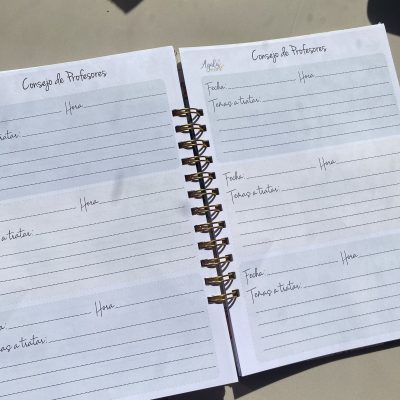 Consejo de Profesores
Hora
tratar:
Hora
a tratar:
Hora
Temas a tratar:
Consejo de Profesores
Fecha: Hora
Temas a tratar:
Fecha: Hora
Temas a tratar:
Fecha: Hora
Temas a tratar: